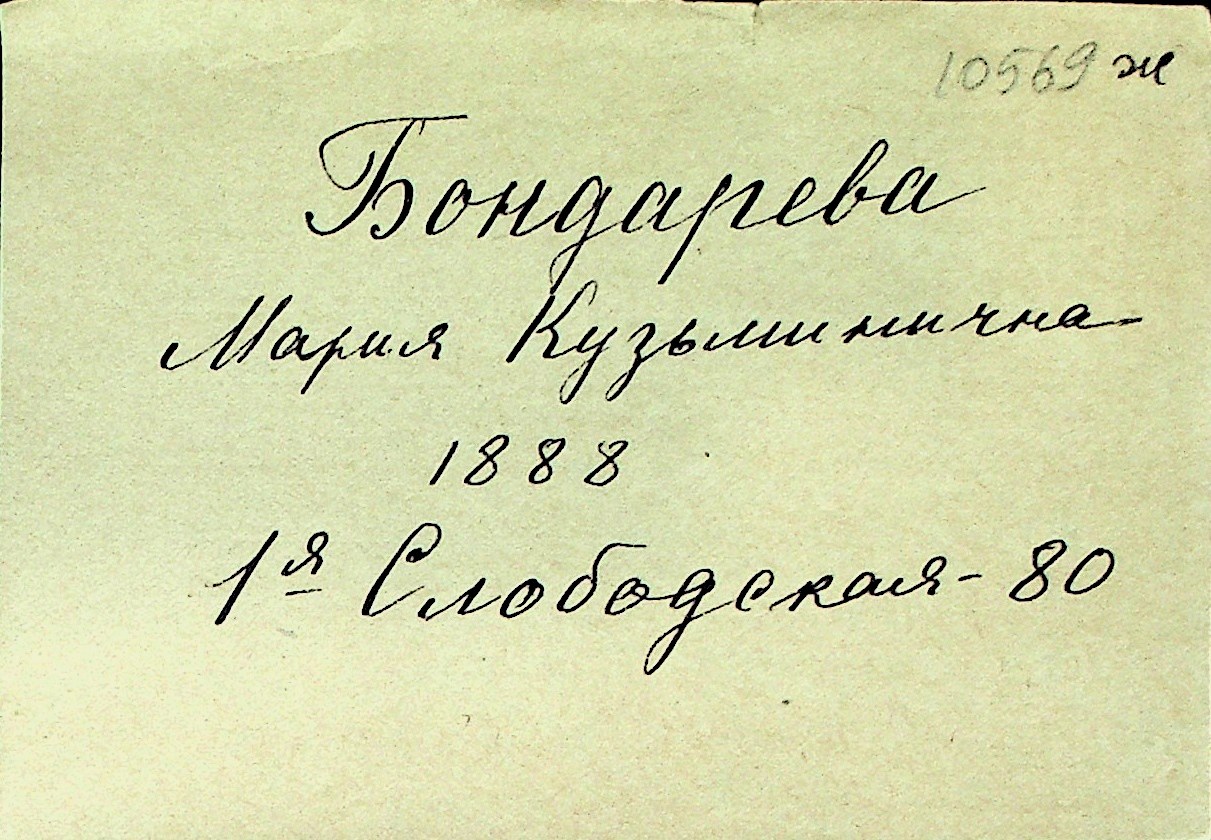 10569 ж
Бондарева
Мария Кузьминична
1888
1я Слободская - 80